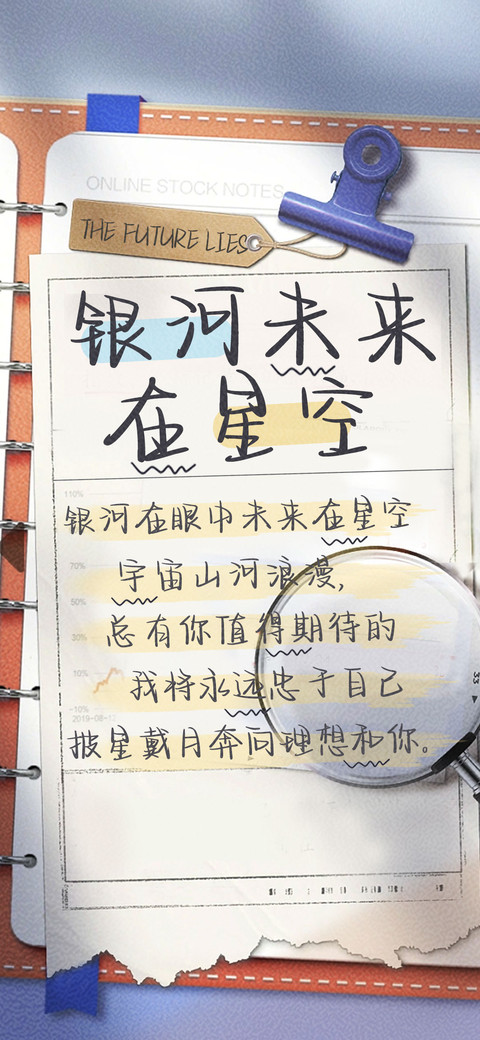 ONLINE STOCK NOTES
THE FUTURE LIES
银河未来
在星空
110%
银河在眼中未来在星空
70%
宇宙山河浪漫,
50%
总有你值得期待的
30%
10%
我将永远忠于自己
-10%
披星戴月奔向理想和你。